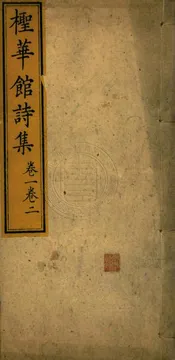 檉華館詩集
卷一卷二